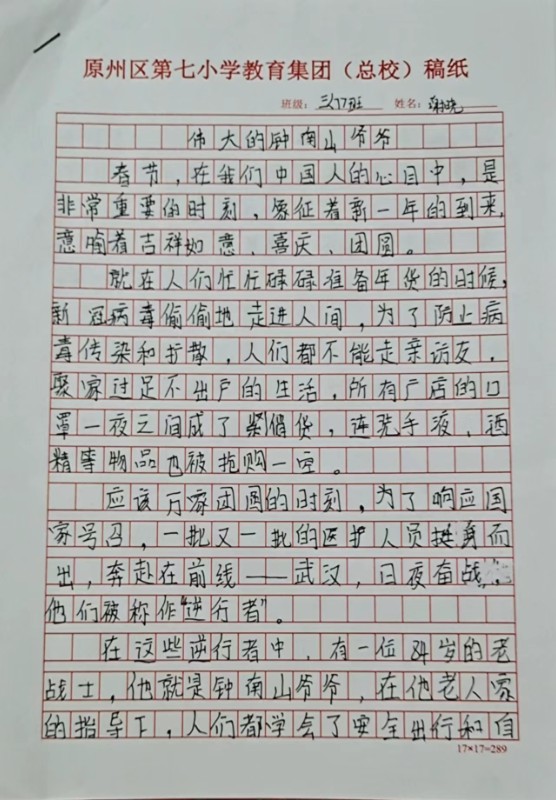 原州区第七小学教育集团（总校）稿纸
班级：三（7）班 姓名：
伟大的钟南山爷爷
春节，在我们中国人的心目中，是
非常重要的时刻，象征着新一年的到来，
意喻着吉祥如意、喜庆、团圆。
就在人们忙忙碌碌准备年货的时候，
新冠病毒偷偷地走进人间，为了防止病
毒传染和扩散，人们都不能走亲访友，
聚家过足不出户的生活，所有广店的口
罩一夜之间成了紧俏货，连洗手液、酒
精等物品也被抢购一空。
应该万家团圆的时刻，为了响应国
家号召，一批又一批的医护人员挺身而
出，奔赴在前线——武汉，日夜奋战，
他们被称作“逆行者”。
在这些逆行者中，有一位84岁的老
战士，他就是钟南山爷爷，在他老人家
的指导下，人们都学会了安全出行和自
17×17=289